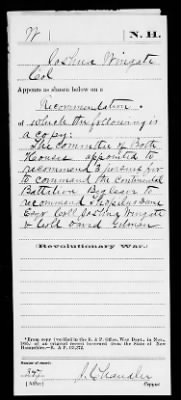 W | N. H.
Joshua Wingate
Col
Appears as shown below on a
Recommendation.
of which the following is
a copy:
The committee of Both
Houses appointed to
recommend 3 persons for
to command the continental
Battalion Begleave to
recommend
Esqr Coll Joshua Wingate
& Coll David Gilman
Revolutionary War.
Copy (verified in the R. & P. Office, War Dept., in Nov.,
of an original record borrowed from the State of New
Hampshire—R. & P.
Number of record:
J. Chandler
Copyist.